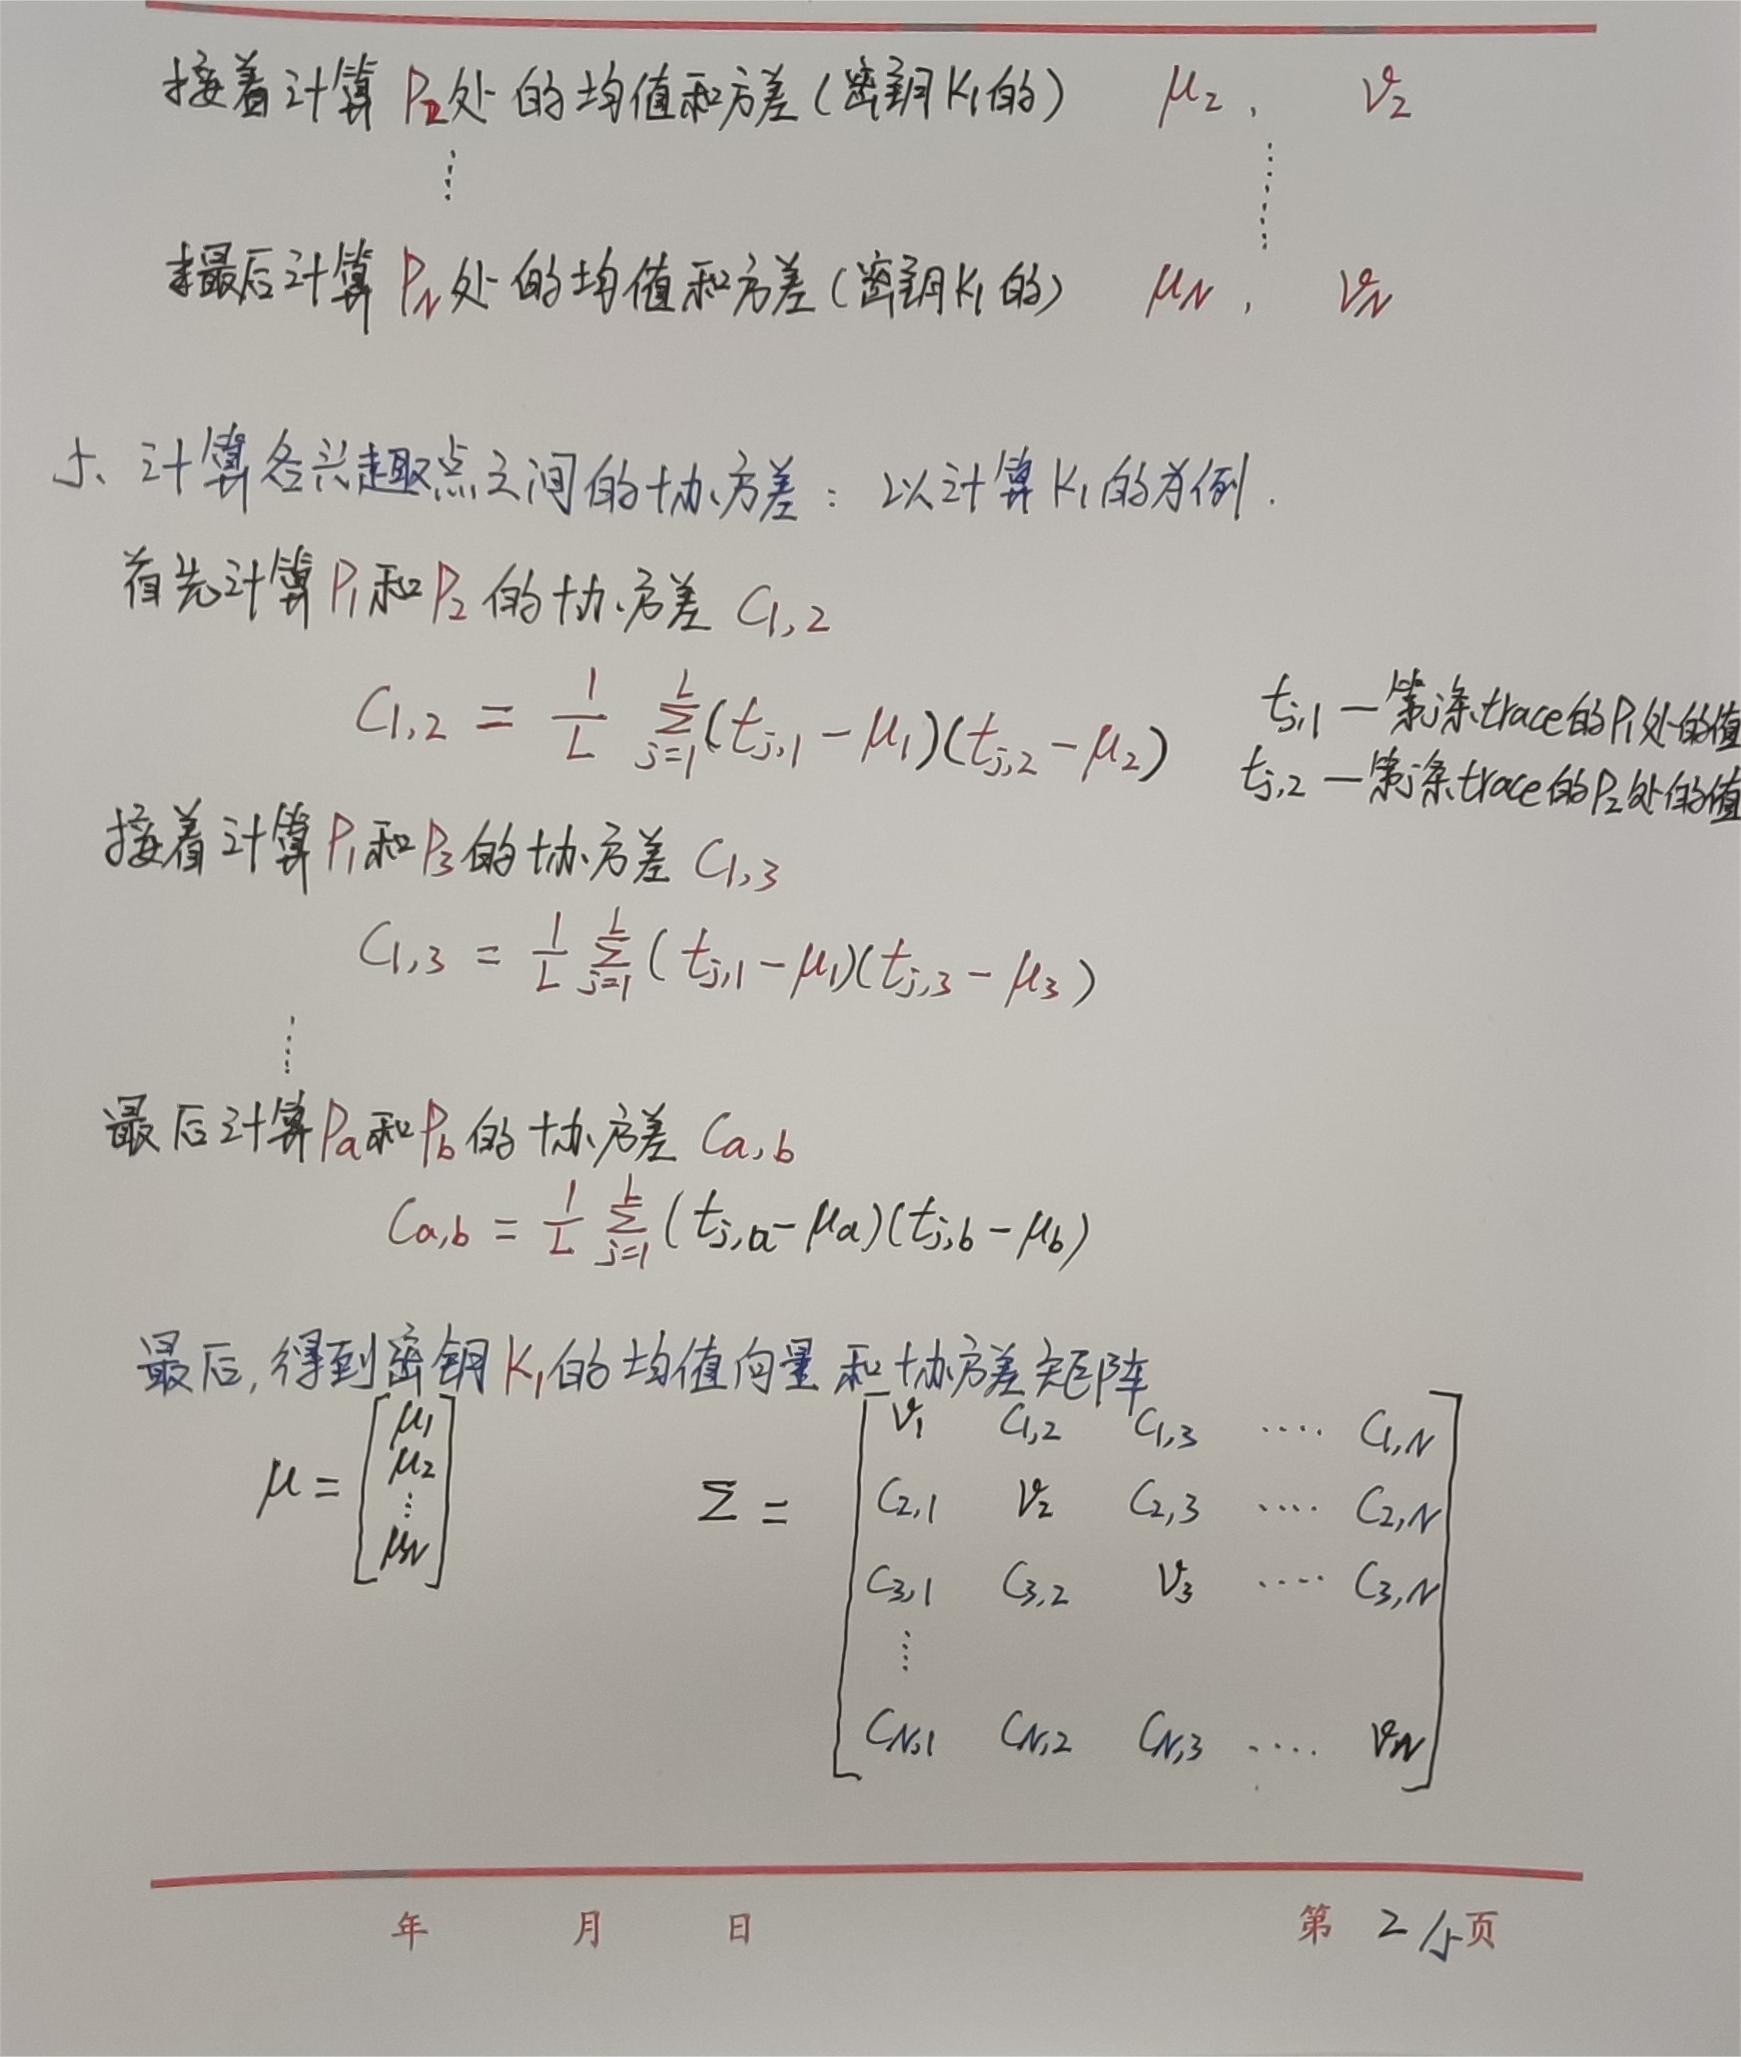 接着计算P2处的均值和方差(密钥K1的) μ2, V2
⋮ ⋮
最后计算PN处的均值和方差(密钥K1的) μN, VN
5、计算各兴趣点之间的协方差: 以计算K1的为例.
首先计算P1和P2的协方差 C1,2
C1,2 = 1/L Σ_{j=1}^{L} (tj,1 − μ1)(tj,2 − μ2)
tj,1 — 第j条trace的P1处的值
tj,2 — 第j条trace的P2处的值
接着计算P1和P3的协方差 C1,3
C1,3 = 1/L Σ_{j=1}^{L} (tj,1 − μ1)(tj,3 − μ3)
⋮
最后计算Pa和Pb的协方差 Ca,b
Ca,b = 1/L Σ_{j=1}^{L} (tj,a − μa)(tj,b − μb)
最后,得到密钥K1的均值向量和协方差矩阵
μ = [μ1 μ2 ⋮ μN]
Σ = [V1 C1,2 C1,3 ···· C1,N
C2,1 V2 C2,3 ···· C2,N
C3,1 C3,2 V3 ···· C3,N
⋮
CN,1 CN,2 CN,3 ···· VN]
年 月 日 第 2/5 页